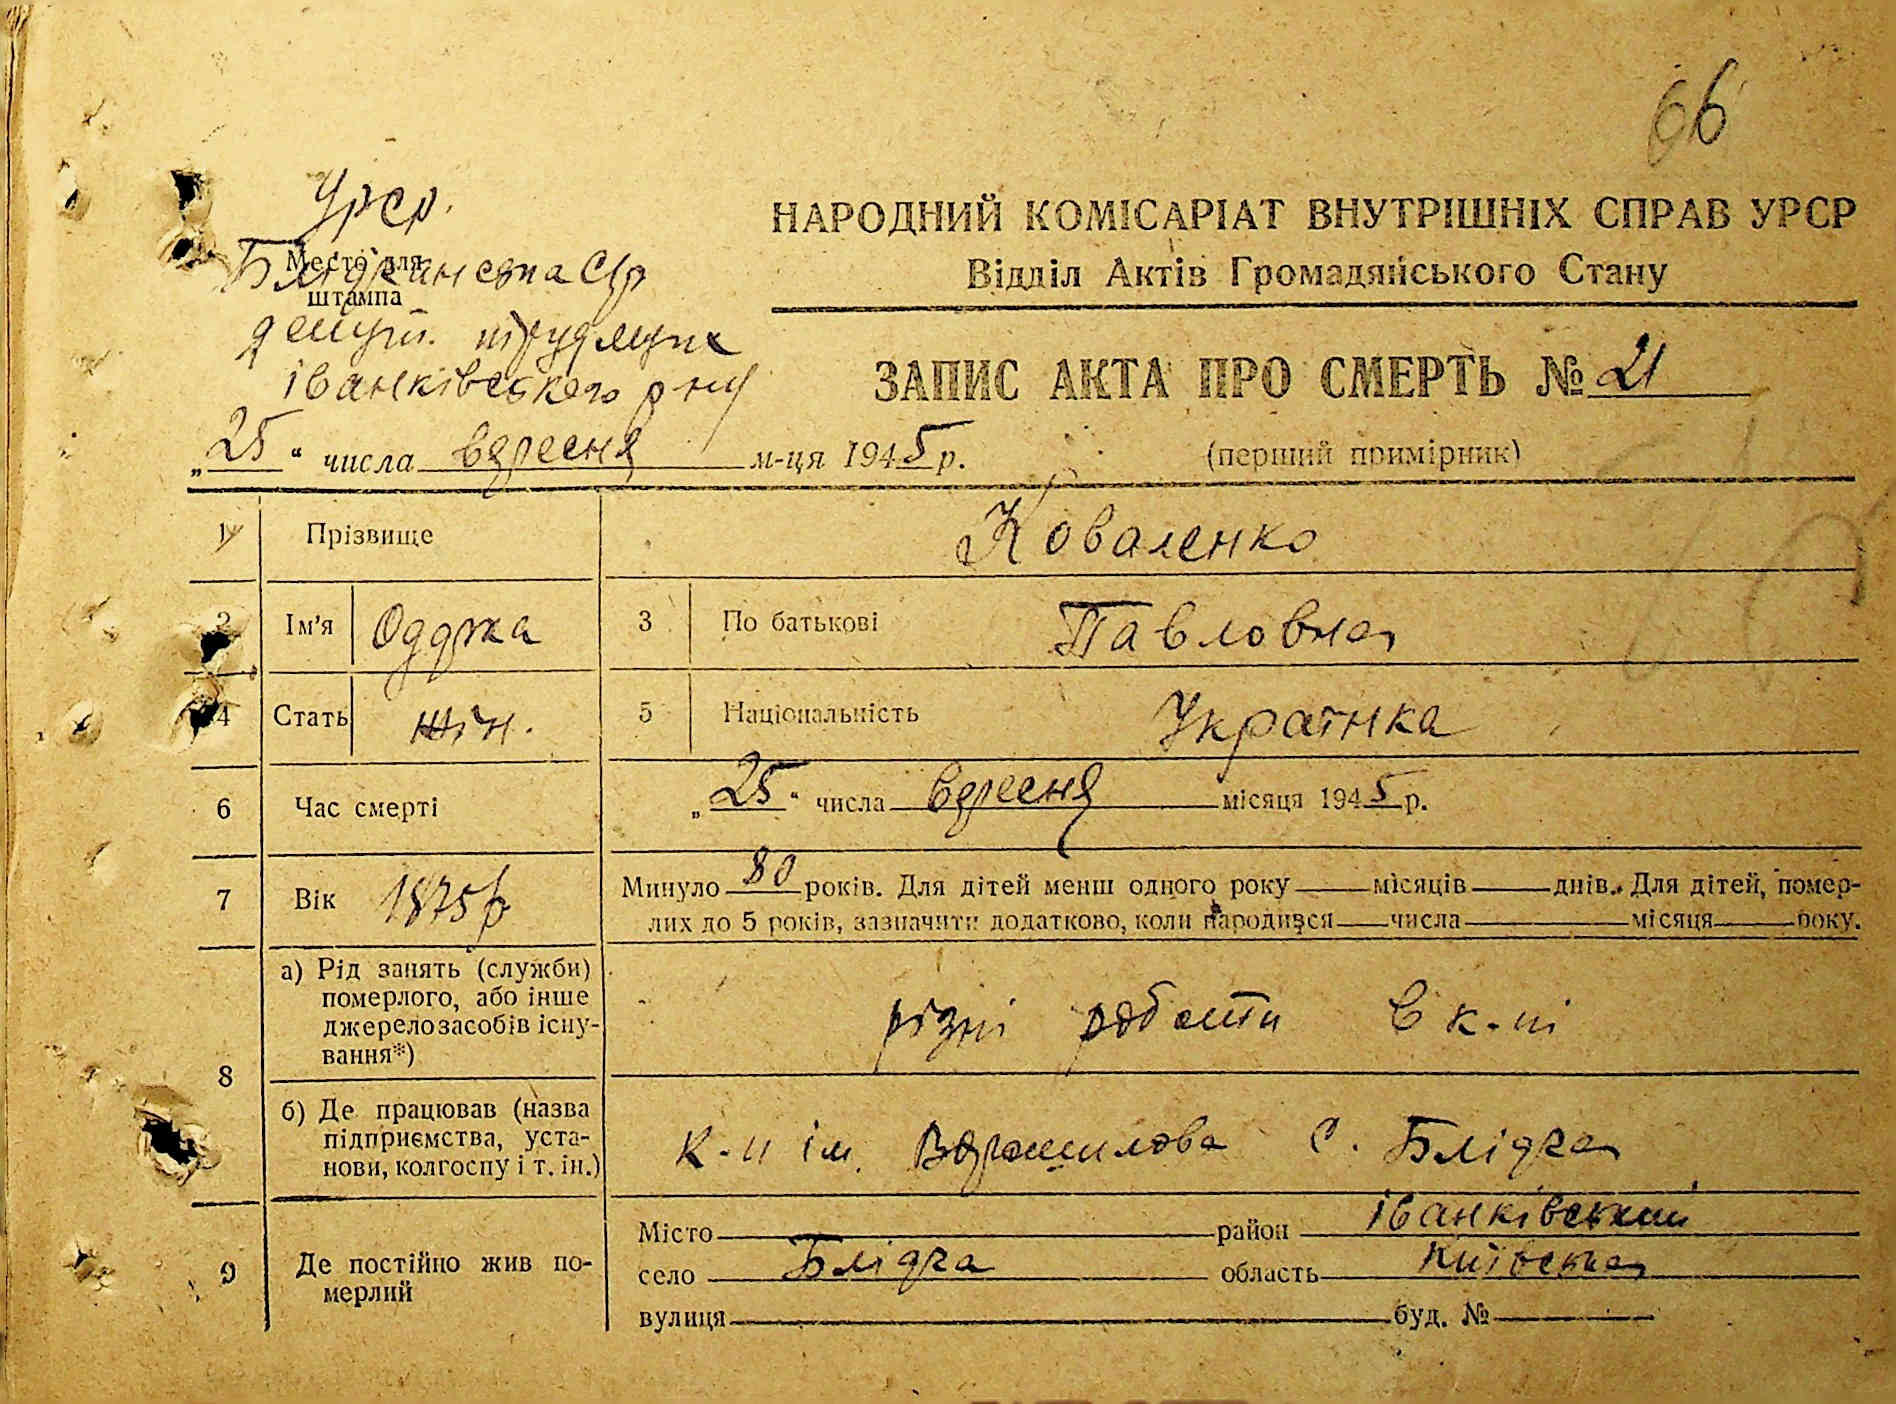 66
УРСР.
НАРОДНИЙ КОМІСАРІАТ ВНУТРІШНІХ СПРАВ УРСР
Место для
штампа
Відділ Актів Громадянського Стану
депут. трудящих
Іванківського р-ну
ЗАПИС АКТА ПРО СМЕРТЬ № 21
„25“ числа вересня м-ця 1945 р.
(перший примірник)
1 Прізвище Коваленко
2 Ім'я 3 По батькові Павловна
4 Стать жін. 5 Національність Українка
6 Час смерті „25“ числа вересня місяця 1945 р.
7 Вік 1875 р Минуло 80 років. Для дітей менш одного року місяців днів. Для дітей, помер-
лих до 5 років, зазначити додатково, коли народився числа місяця року.
8 а) Рід занять (служби)
померлого, або інше
джерело засобів існу-
вання*)
різні роботи в к-пі
б) Де працював (назва
підприємства, уста-
нови, колгоспу і т. ін.)
к-п ім. Ворошилова с. Блідча
9 Де постійно жив по-
мерлий
Місто район Іванківський
село Блідча область Київська
вулиця буд. №